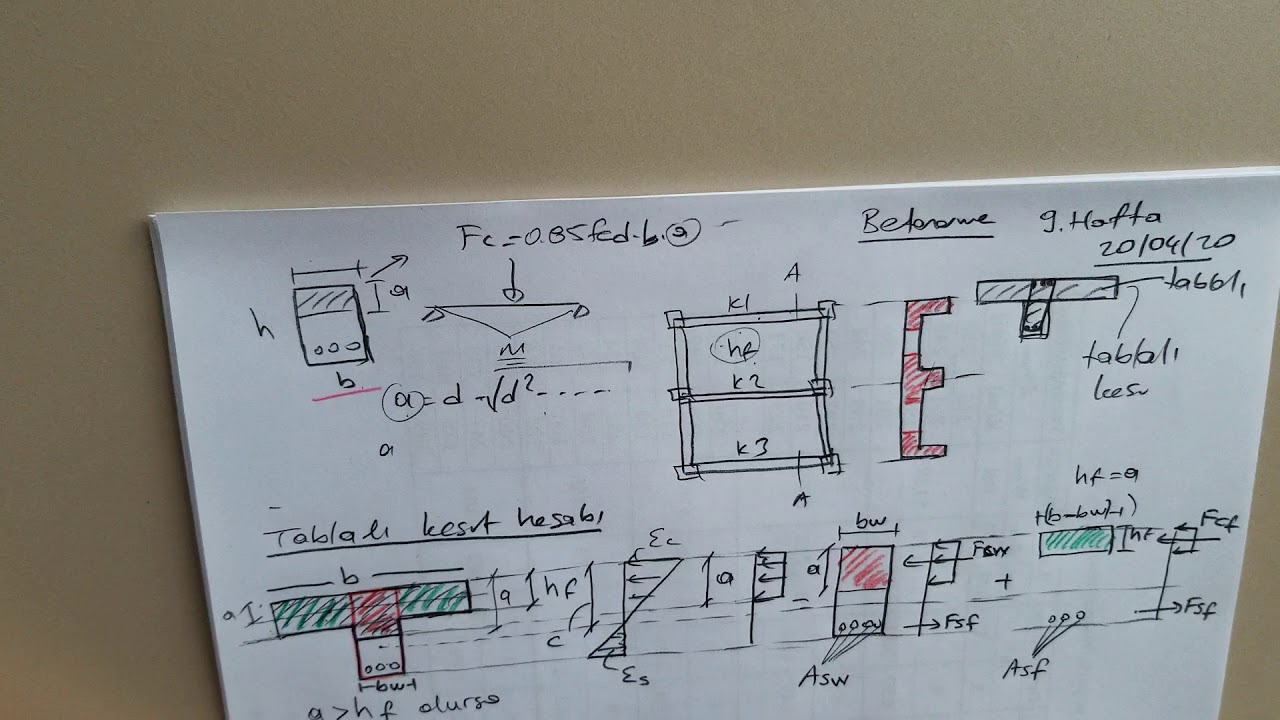 Fc=0.85fcd.b.a
Betonarme 9.Hafta
20/04/20
h
a
b
M
a = d - √d² - - - -
a
A
K1
hf
K2
K3
A
tablalı
tablalı
kesit
hf=a
Tablalı kesit hesabı
b
a
bw
a
hf
c
εc
εs
a
bw
a
Fsw
Fsf
Asw
+
(b-bw)
hf
Fcf
Fsf
Asf
a>hf olursa